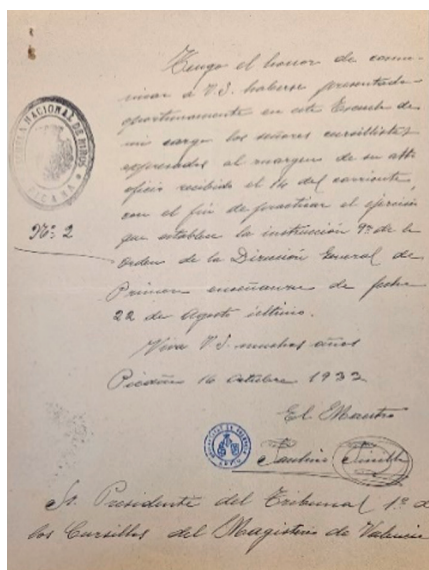 Tengo el honor de comu-
nicar a V.S. haberse presentado
oportunamente en esta Escuela de
mi cargo los señores cursillistas
expresados al margen de su att.
oficio recibido el 14 del corriente,
con el fin de practicar el ejercicio
que establece la instrucción 9ª de la
Orden de la Dirección General de
Primera enseñanza de fecha
22 de Agosto último.
Viva V.S. muchos años
Picaña 16 Octubre 1933
El Maestro
Paulino
Sr. Presidente del Tribunal 1º d
los Cursillos del Magisterio de Valencia
ESCUELA NACIONAL DE NIÑOS
PICAÑA
Nº 2